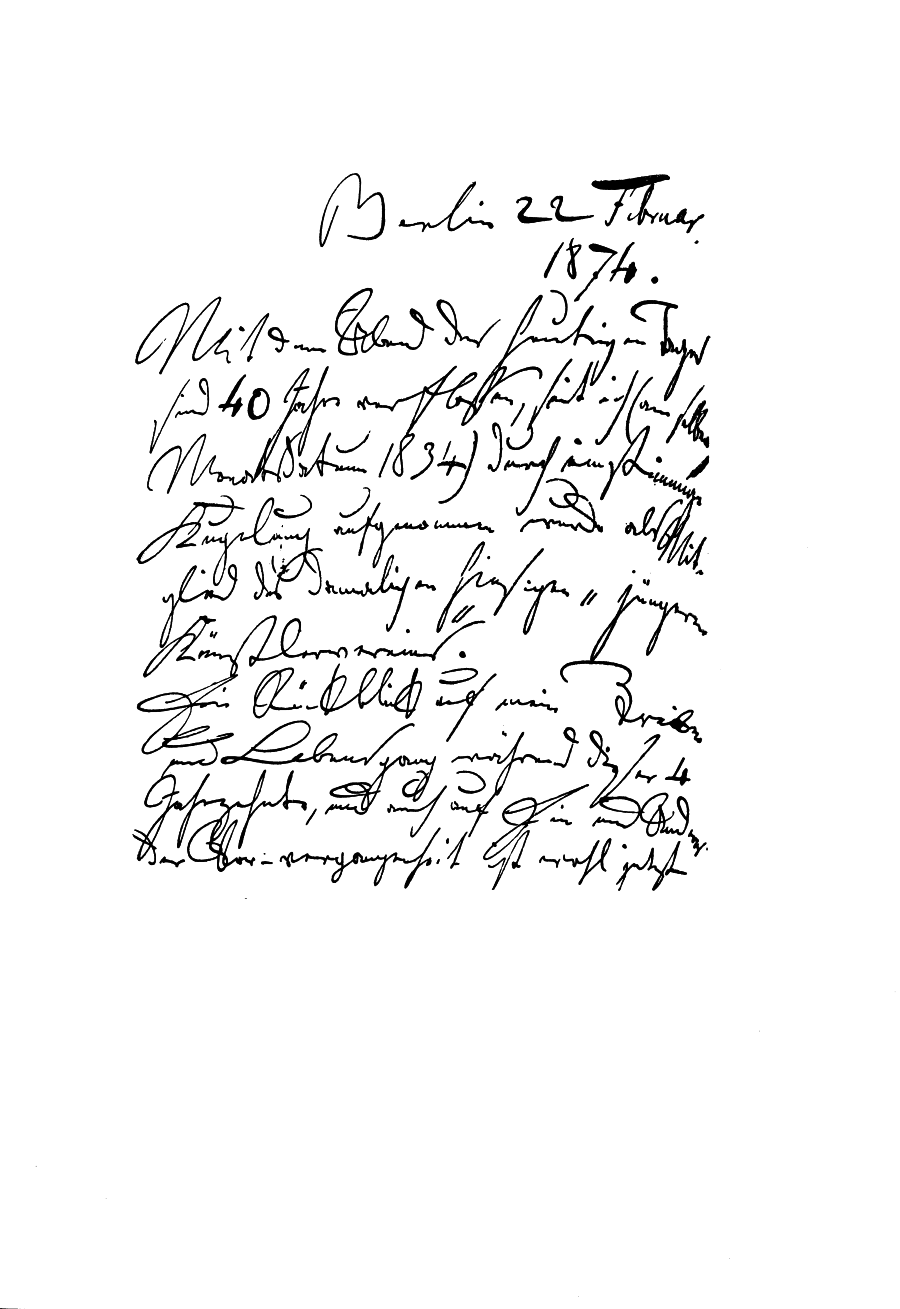 Berlin 22 Februar
1874.
Mit dem Abend des heutigen Tages
sind 40 Jahre verflossen, seit ich (am selben
Monatsdatum 1834) durch einstimmige
Kugelung aufgenommen wurde als Mit-
glied des damaligen hiesigen „jüngeren
Künstlervereins".
Ein Rückblick auf mein Treiben
und Lebensgang während dieser 4
Jahrzehnte, und auch auf Ein und
der Vor-vergangenheit ist wohl jetzt